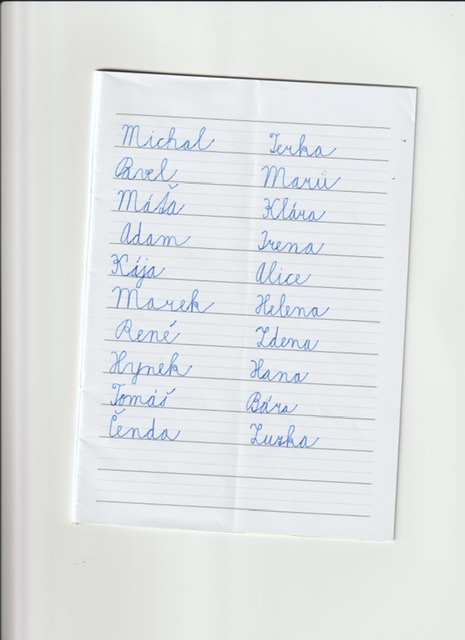 Michal Terka
Pavel Maruš
Máša Klára
Adam Irena
Kája Alice
Marek Helena
René Zdena
Hynek Hana
Tomáš Bára
Čenda Zuzka